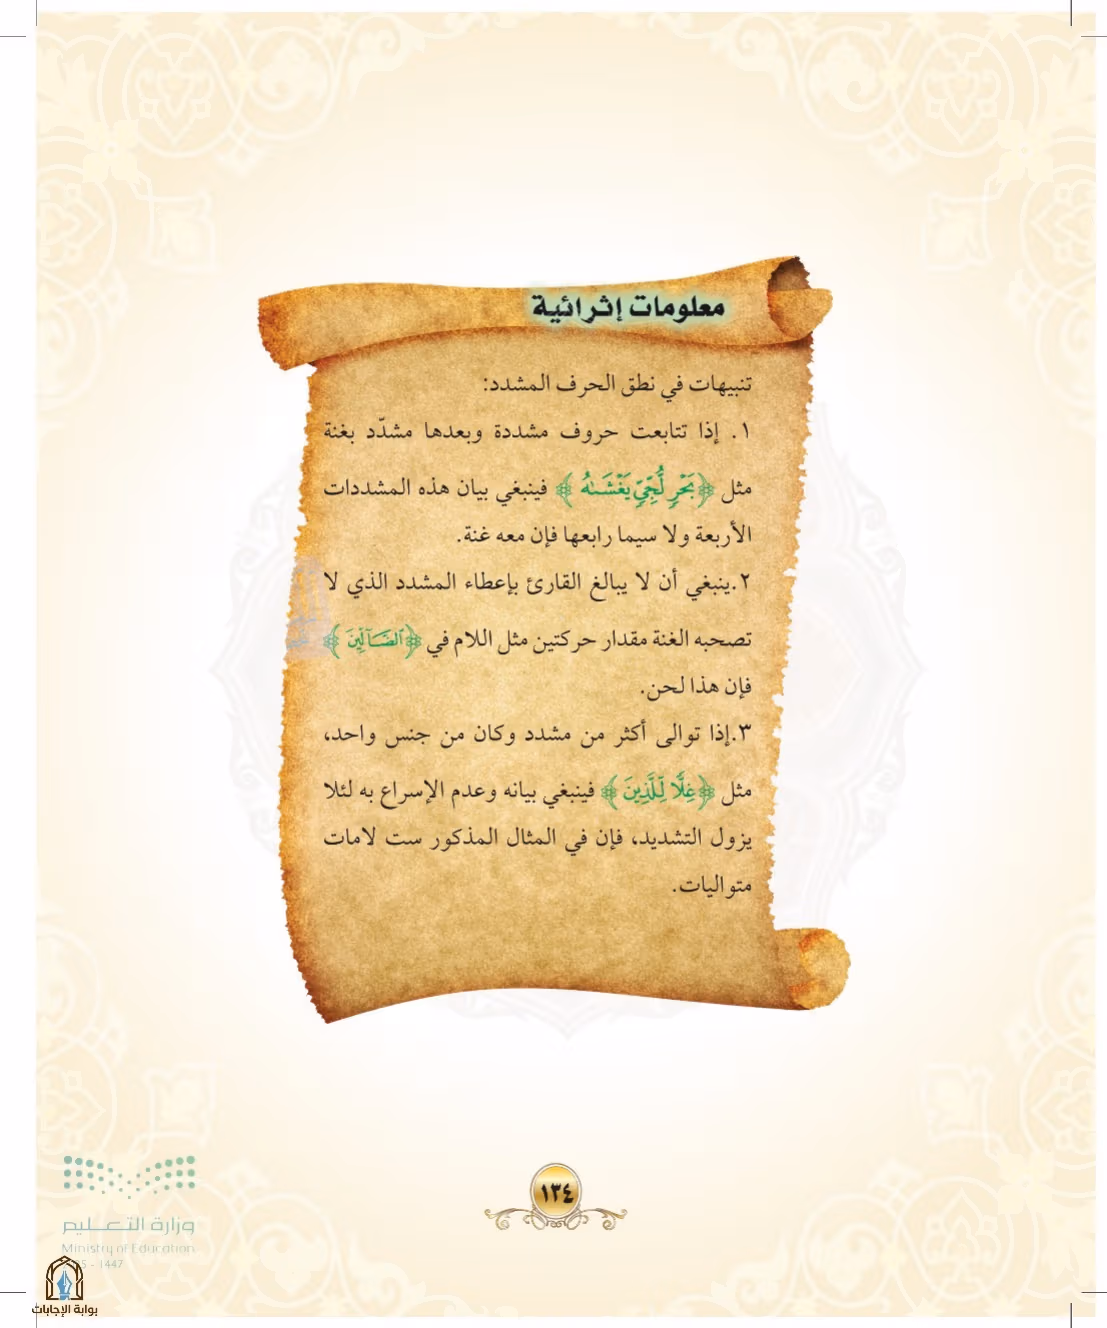 معلومات إثرائية
تنبيهات في نطق الحرف المشدد:
١. إذا تتابعت حروف مشددة وبعدها مشدّد بغنة
مثل ﴿بَحْرٍ لُّجِّيٍّ يَغْشَىٰهُ﴾ فينبغي بيان هذه المشددات
الأربعة ولا سيما رابعها فإن معه غنة.
٢.ينبغي أن لا يبالغ القارئ بإعطاء المشدد الذي لا
تصحبه الغنة مقدار حركتين مثل اللام في ﴿ٱلضَّآلِّينَ﴾
فإن هذا لحن.
٣.إذا توالى أكثر من مشدد وكان من جنس واحد،
مثل ﴿غِلًّا لِّلَّذِينَ﴾ فينبغي بيانه وعدم الإسراع به لئلا
يزول التشديد، فإن في المثال المذكور ست لامات
متواليات.
١٣٤
وزارة التعليم
Ministry of Education
5 - 1447
بوابة الإجابات